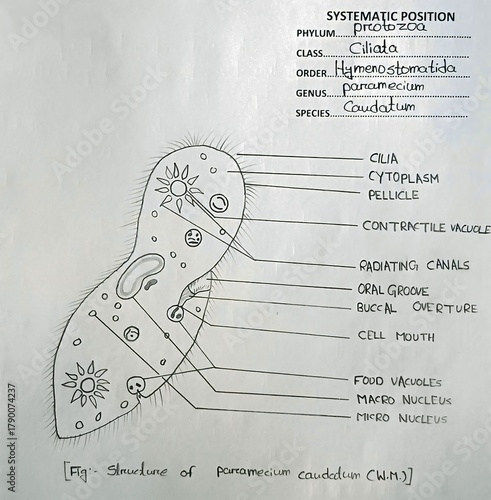 SYSTEMATIC POSITION
PHYLUM...protozoa
CLASS...Ciliata
ORDER...Hymenostomatida
GENUS...paramecium
SPECIES...Caudatum
CILIA
CYTOPLASM
PELLICLE
CONTRACTILE VACUOLE
RADIATING CANALS
ORAL GROOVE
BUCCAL OVERTURE
CELL MOUTH
FOOD VACUOLES
MACRO NUCLEUS
MICRO NUCLEUS
[Fig:- Structure of paramecium caudatum (W.M.)]
Adobe Stock | #1790074237
Adobe Stock